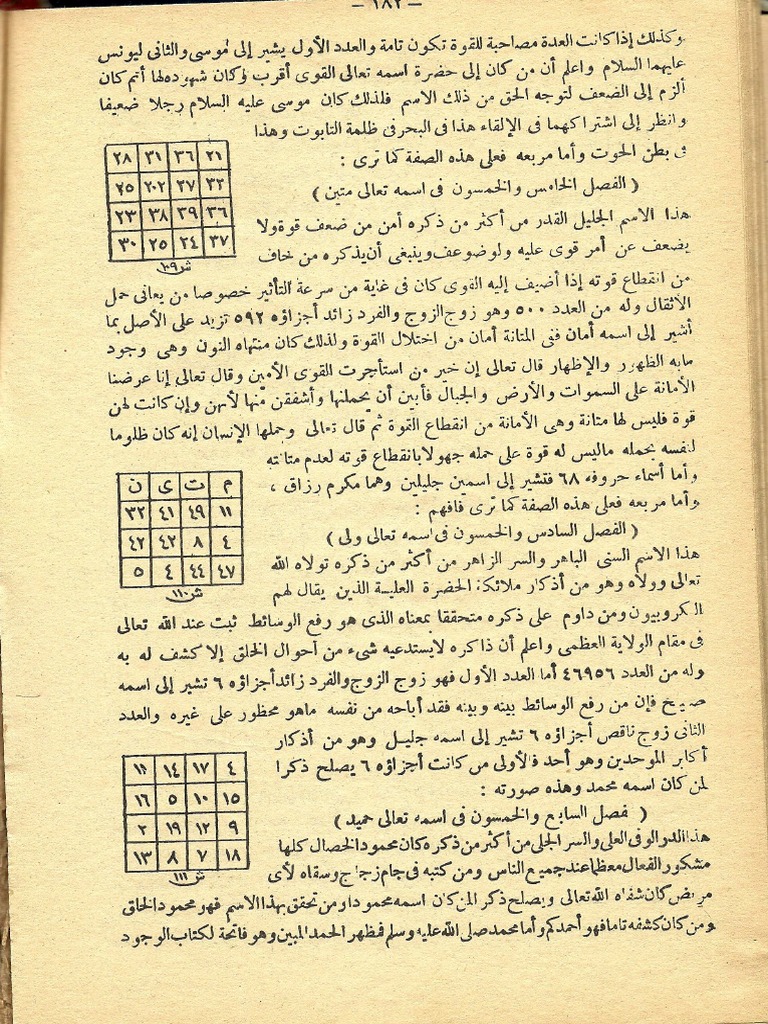 — ١٨٢ —
وكذلك إذا كانت العدة مصاحبة للقوة تكون تامة والعدد الأول يشير إلى موسى والثانى ليونس
عليهما السلام واعلم أن من كان إلى حضرة اسمه تعالى القوى أقرب وكان شهوده لها أتم كان
ألزم إلى الضعف لتوجه الحق من ذلك الاسم فلذلك كان موسى عليه السلام رجلا ضعيفا
وانظر إلى اشتراكهما فى الإلقاء هذا فى البحر فى ظلمة التابوت وهذا
فى بطن الحوت وأما مربعه فعلى هذه الصفة كما ترى :
٢١ ٣٦ ٣١ ٢٨
٣٢ ٢٧ ٢٠٢ ٢٥
٣٦ ٢٩ ٣٨ ٢٣
٣٧ ٢٤ ٢٥ ٣٠
ش ١٠٩
( الفصل الخامس والخمسون فى اسمه تعالى متين )
هذا الاسم الجليل القدر من أكثر من ذكره أمن من ضعف قوة ولا
يضعف عن أمر قوى عليه ولو ضوعف وينبغى أن يذكره من خاف
من انقطاع قوته إذا أضيف إليه القوى كان فى غاية من سرعة التأثير خصوصا من يعانى حمل
الأثقال وله من العدد ٥٠٠ وهو زوج الزوج والفرد زائد أجزاؤه ٥٩٢ تزيد على الأصل بما
أشير إلى اسمه أمان ففى المتانة أمان من اختلال القوة ولذلك كان منتهاه النون وهى وجود
مابه الظهور والإظهار قال تعالى إن خير من استأجرت القوى الأمين وقال تعالى إنا عرضنا
الأمانة على السموات والأرض والجبال فأبين أن يحملنها وأشفقن منها لأنهن وإن كانت لهن
قوة فليس لها متانة وهى الأمانة من انقطاع القوة ثم قال تعالى وحملها الإنسان إنه كان ظلوما
لنفسه بحمله ماليس له قوة على حمله جهولا بانقطاع قوته لعدم متانته
وأما أسماء حروفه ٦٨ فتشير إلى اسمين جليلين وهما مكرم رزاق ،
وأما مربعه فعلى هذه الصفة كما ترى فافهم :
م ت ى ن
١١ ٤٩ ٤١ ٣٢
٤ ٨ ٤٢ ٤٢
٤٧ ٤٤ ٤ ٥
ش ١١٠
( الفصل السادس والخمسون فى اسمه تعالى ولى )
هذا الاسم السنى الباهر والسر الزاهر من أكثر من ذكره تولاه الله
تعالى وولاه وهو من أذكار ملائكة الحضرة العلية الذين يقال لهم
الكروبيون ومن داوم على ذكره متحققا بمعناه الذى هو رفع الوسائط ثبت عند الله تعالى
فى مقام الولاية العظمى واعلم أن ذاكره لا يستدعيه شىء من أحوال الخلق إلا كشف له به
وله من العدد ٤٦٩٥٦ أما العدد الأول فهو زوج الزوج والفرد زائد أجزاؤه ٦ تشير إلى اسمه
فإن من رفع الوسائط بينه وبينه فقد أباحه من نفسه ماهو محظور على غيره والعدد
الثانى زوج ناقص أجزاؤه ٦ تشير إلى اسمه جليل وهو من أذكار
أكابر الموحدين وهو أحد فالأولى من كانت أجزاؤه ٦ يصلح ذكرا
لمن كان اسمه محمد وهذه صورته :
٤ ١٧ ١٤ ١١
١٥ ١٠ ٥ ١٦
٩ ١٢ ١٩ ٢
١٨ ٧ ٨ ١٣
ش ١١١
( فصل السابع والخمسون فى اسمه تعالى حميد )
هذا العلى والسر الجلى من أكثر من ذكره كان محمود الخصال كلها
مشكور الفعال معظما عند جميع الناس ومن كتبه فى جام زجاج وسقاه لأى
مريض كان شفاه الله تعالى ويصلح ذكر المن كان اسمه محمود او من تحقق بهذا الاسم فهو محمود الخلق
ومن كان كشفه تاما فهو أحمدكم وأما محمد صلى الله عليه وسلم فمظهر الحمد المبين وهو فاتحة لكتاب الوجود